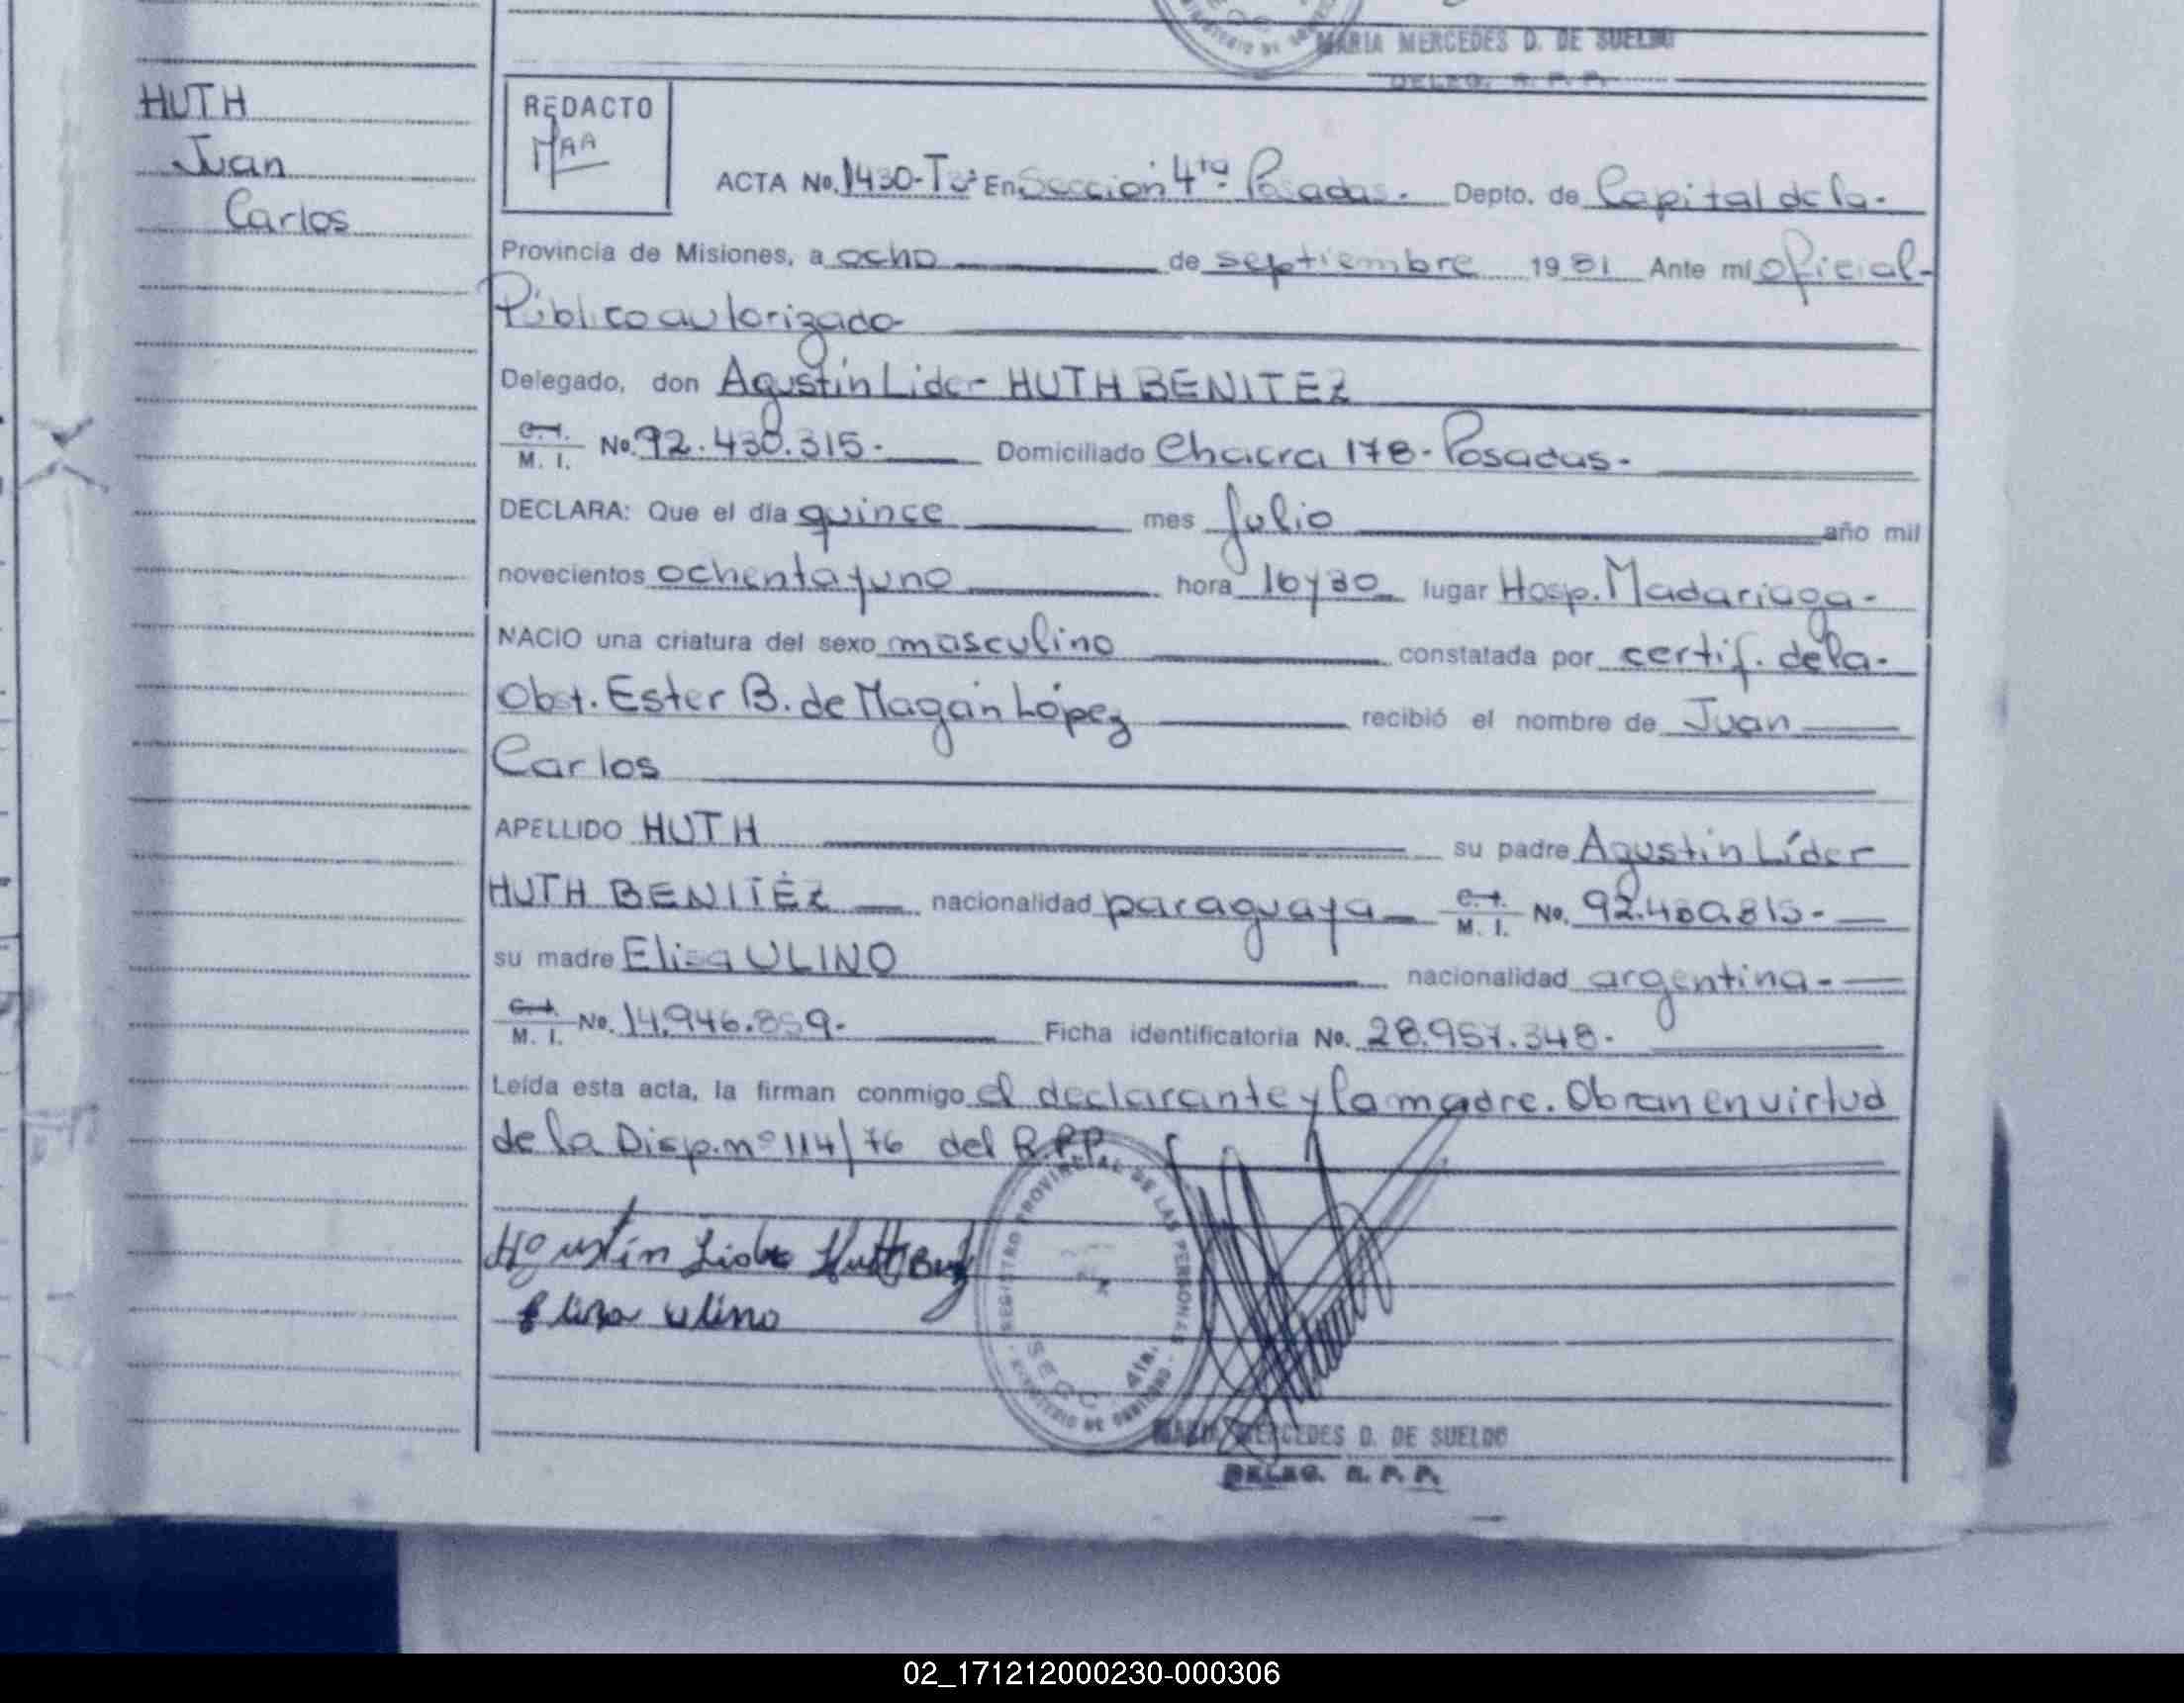 MARIA MERCEDES D. DE SUELDO
DELEG. R. P. P.
HUTH
Juan
Carlos
REDACTO
MAA
ACTA No. 1430-Tº3º En Sección 4ta Posadas. Depto. de Capital de la-
Provincia de Misiones, a ocho de septiembre 1981 Ante mi oficial-
Público autorizado
Delegado, don Agustín Lider HUTH BENITEZ
C.I. M. I. No. 92.430.315.- Domiciliado Chacra 178-Posadas-
DECLARA: Que el día quince mes julio año mil
novecientos ochenta y uno hora 16y30 lugar Hosp. Madariaga-
NACIO una criatura del sexo masculino constatada por certif. de la-
Obst. Ester B. de Magán López recibió el nombre de Juan
Carlos
APELLIDO HUTH su padre Agustín Líder
HUTH BENITÉZ nacionalidad paraguaya C.I. M. I. No. 92.430.315-
su madre Elisa ULINO nacionalidad argentina-
C.I. M. I. No. 14.946.859- Ficha identificatoria No. 28.957.348-
Leída esta acta, la firman conmigo el declarante y la madre. Obran en virtud
de la Disp. nº 114/76 del R.P.P.
Agustín Lider Huth Benz
Elisa Ulino
REGISTRO PROVINCIAL DE LAS PERSONAS
SECC 4ta.
MINISTERIO DE GOBIERNO
MARIA MERCEDES D. DE SUELDO
DELEG. R. P. P.
02_171212000230-000306